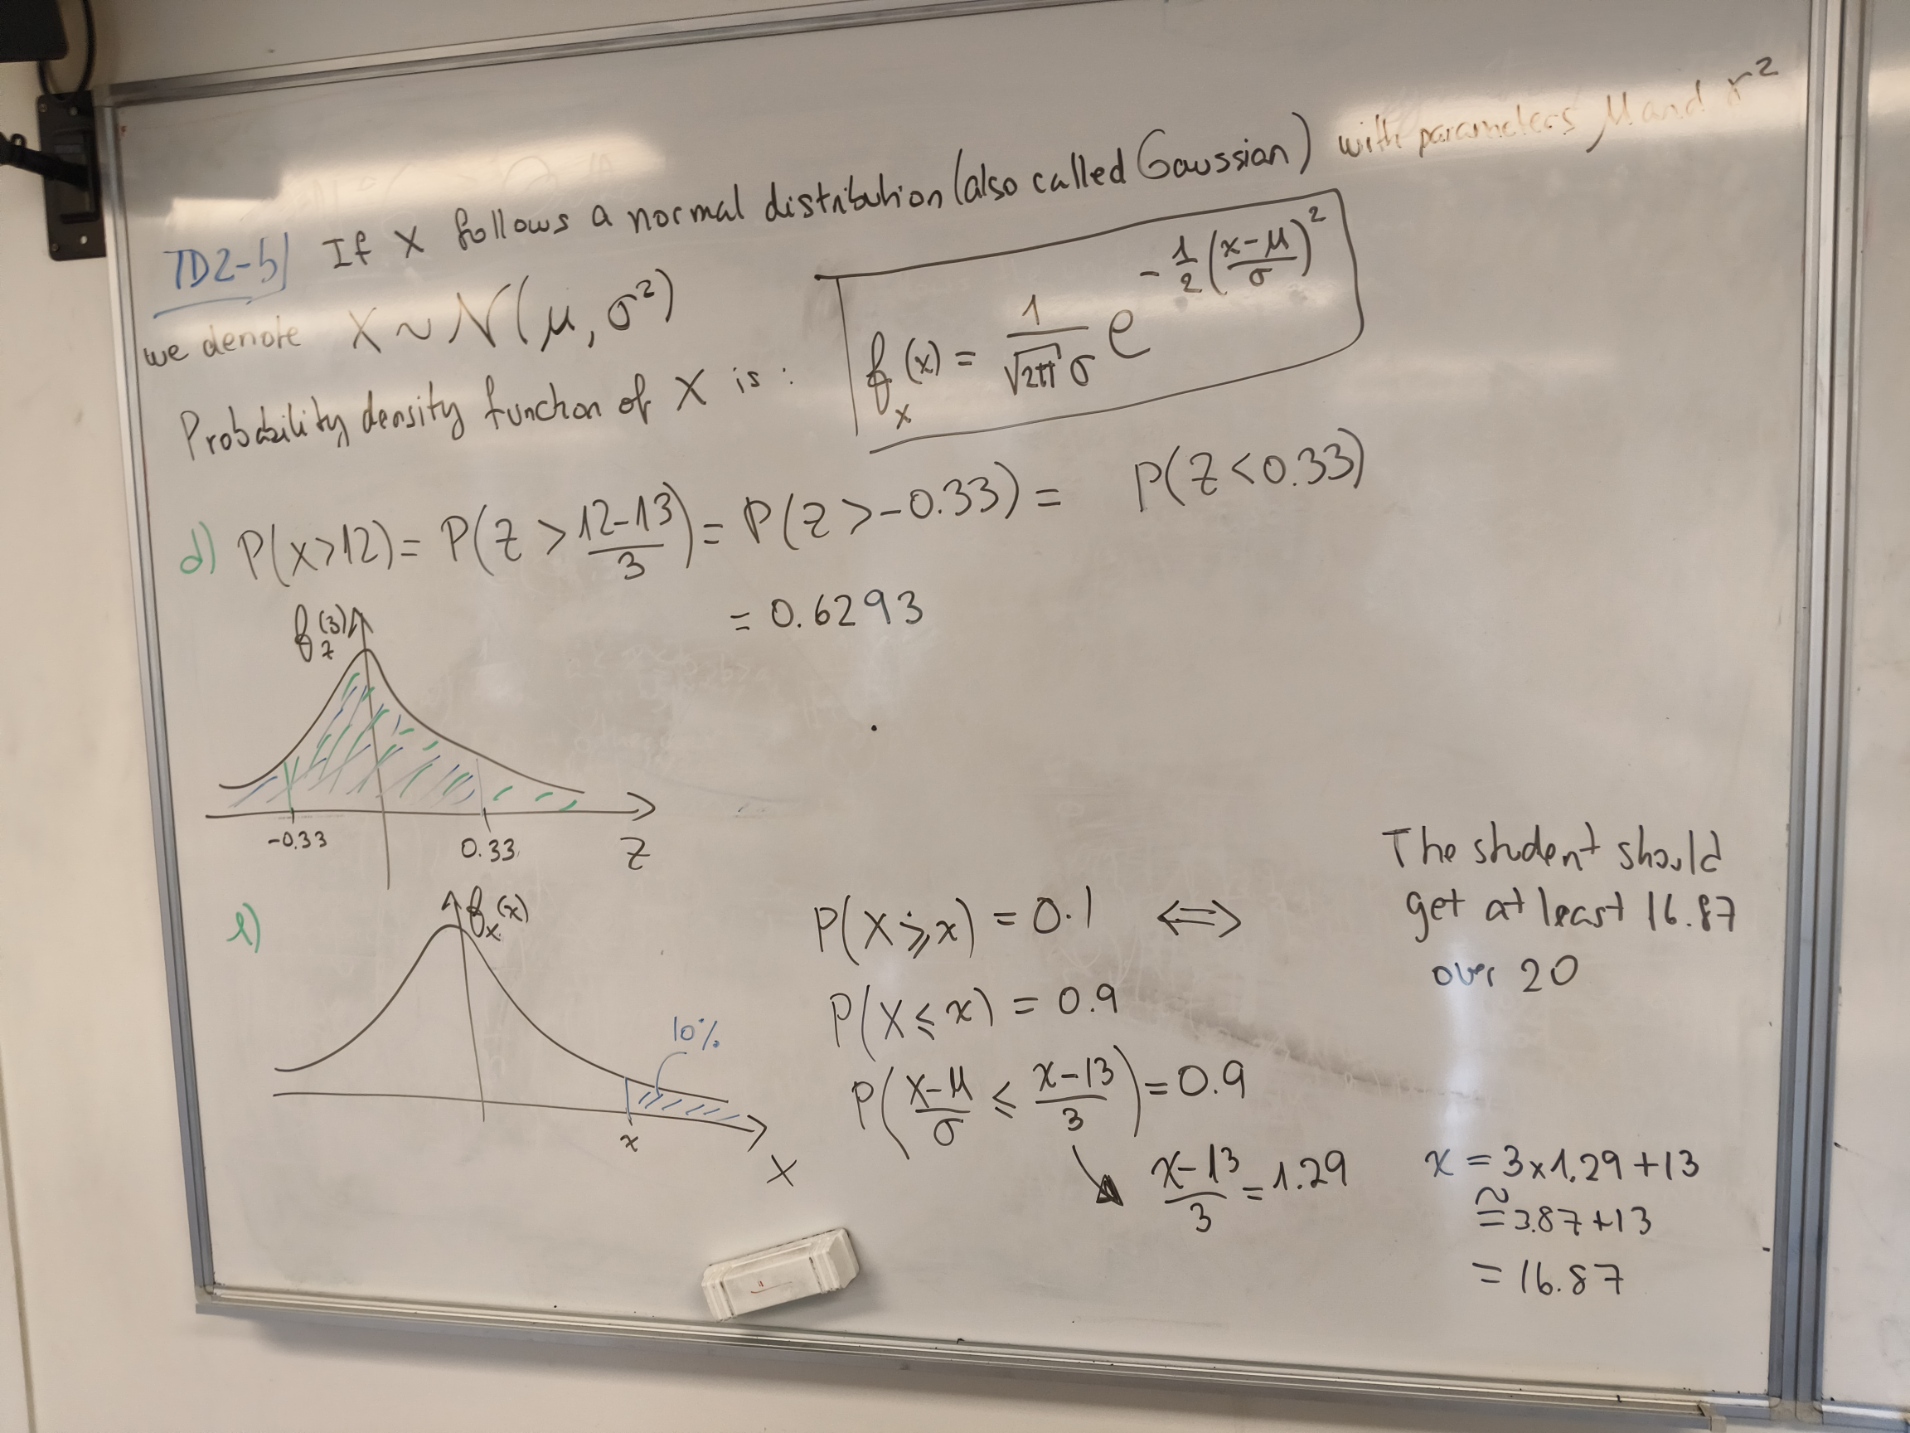 TD2-5) If X follows a normal distribution (also called Gaussian) with parameters μ and σ²
we denote X ~ N(μ, σ²)
Probability density function of X is : f_X(x) = 1/(√2π σ) e^(-1/2 ((x-μ)/σ)²)
d) P(X>12) = P(Z > (12-13)/3) = P(Z > -0.33) = P(Z < 0.33)
= 0.6293
f_Z(z)
-0.33 0.33 Z
e) f_X(x)
10%
x
X
P(X ⩾ x) = 0.1 ⟺
P(X ⩽ x) = 0.9
P((X-μ)/σ ⩽ (x-13)/3) = 0.9
(x-13)/3 = 1.29
The student should
get at least 16.87
over 20
x = 3×1.29+13
≅ 3.87+13
= 16.87